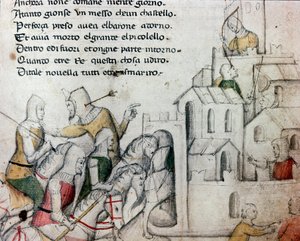 Anchora none comane niente giorno
Atanto gionse un messo de un chastello
Per força preso avea elbarone adorno
Et avia morto elgrante
Dentro edifuori etongne parte intorno
Quanto etre Re questa chosa udiro
Ditale novella tutti